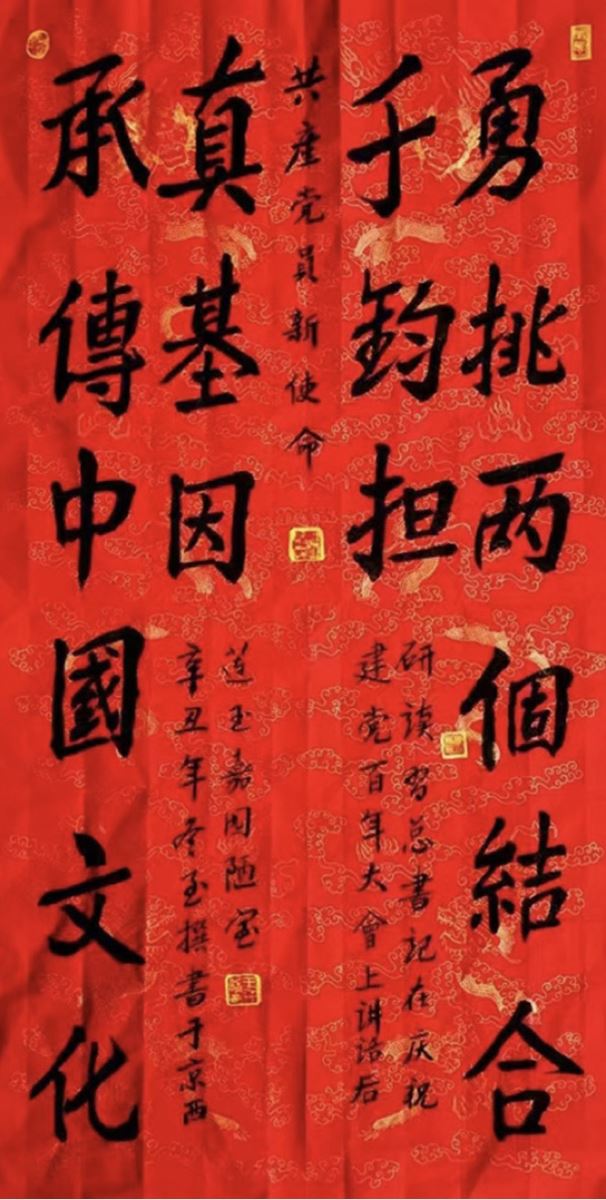 勇挑两個結合
千鈞担
研读習总書記在庆祝
建党百年大會上讲话后
共產党員新使命
承傳中國文化
真基因
辛丑年冬至撰書于京西
莲玉嘉园陋室